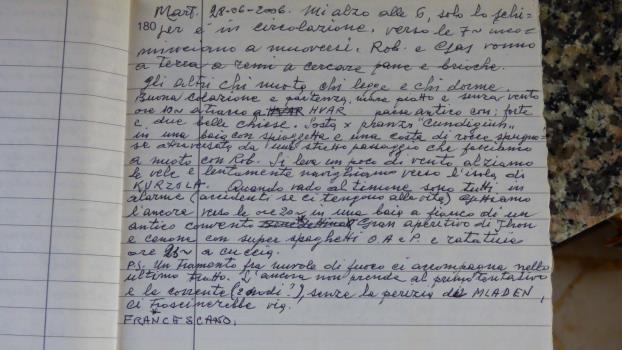 Mart. 28-06-2006. Mi alzo alle 6, solo lo
180 per è in circolazione. verso le 7~
minciano a muoversi. Rob. e vanno
a terra a remi a cercare pane e brioche.
Gli altri chi nuota chi legge e chi dorme.
Buona colazione e partenza, mare piatto e senza vento
ore 10~ a HVAR HVAR paese antico con: forte
e due belle chiese. Sosta x pranzo
in una baia con spiaggetta e una costa di rocce
se attraversata da 1 stretto passaggio che facciamo
a nuoto con Rob. Si leva un poco di vento alziamo
le vele e lentamente navighiamo verso l'isola di
KURZOLA. Quando vado al timone sono tutti in
allarme (accidenti se ci tengono alla vita)
l'ancora verso le ore 20~ in una baia a fianco di un
antico convento Gran aperitivo di Jhon
e cenone con super spaghetti O.A e P. e ratatuia
ore 23~ a cuccia.
P.S. Un tramonto fra nuvole di fuoco ci accompagna nello
ultimo tratto. L'ancora non prende al primo tentativo
e la corrente (2 nodi?), senza la perizia di MLADEN,
ci trascinerebbe via.
FRANCESCANO.